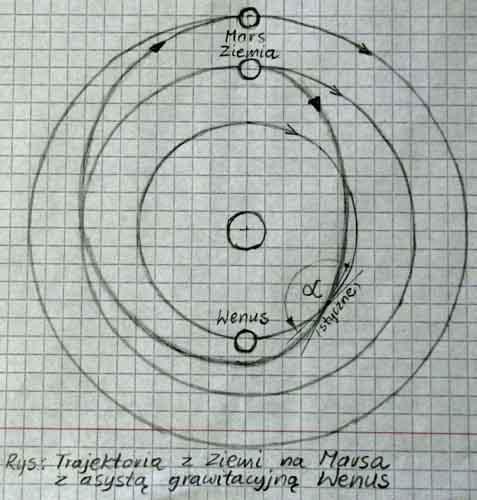 Mars
Ziemia
α
(styczne)
Wenus
Rys: Trajektoria z Ziemi na Marsa
z asystą grawitacyjną Wenus